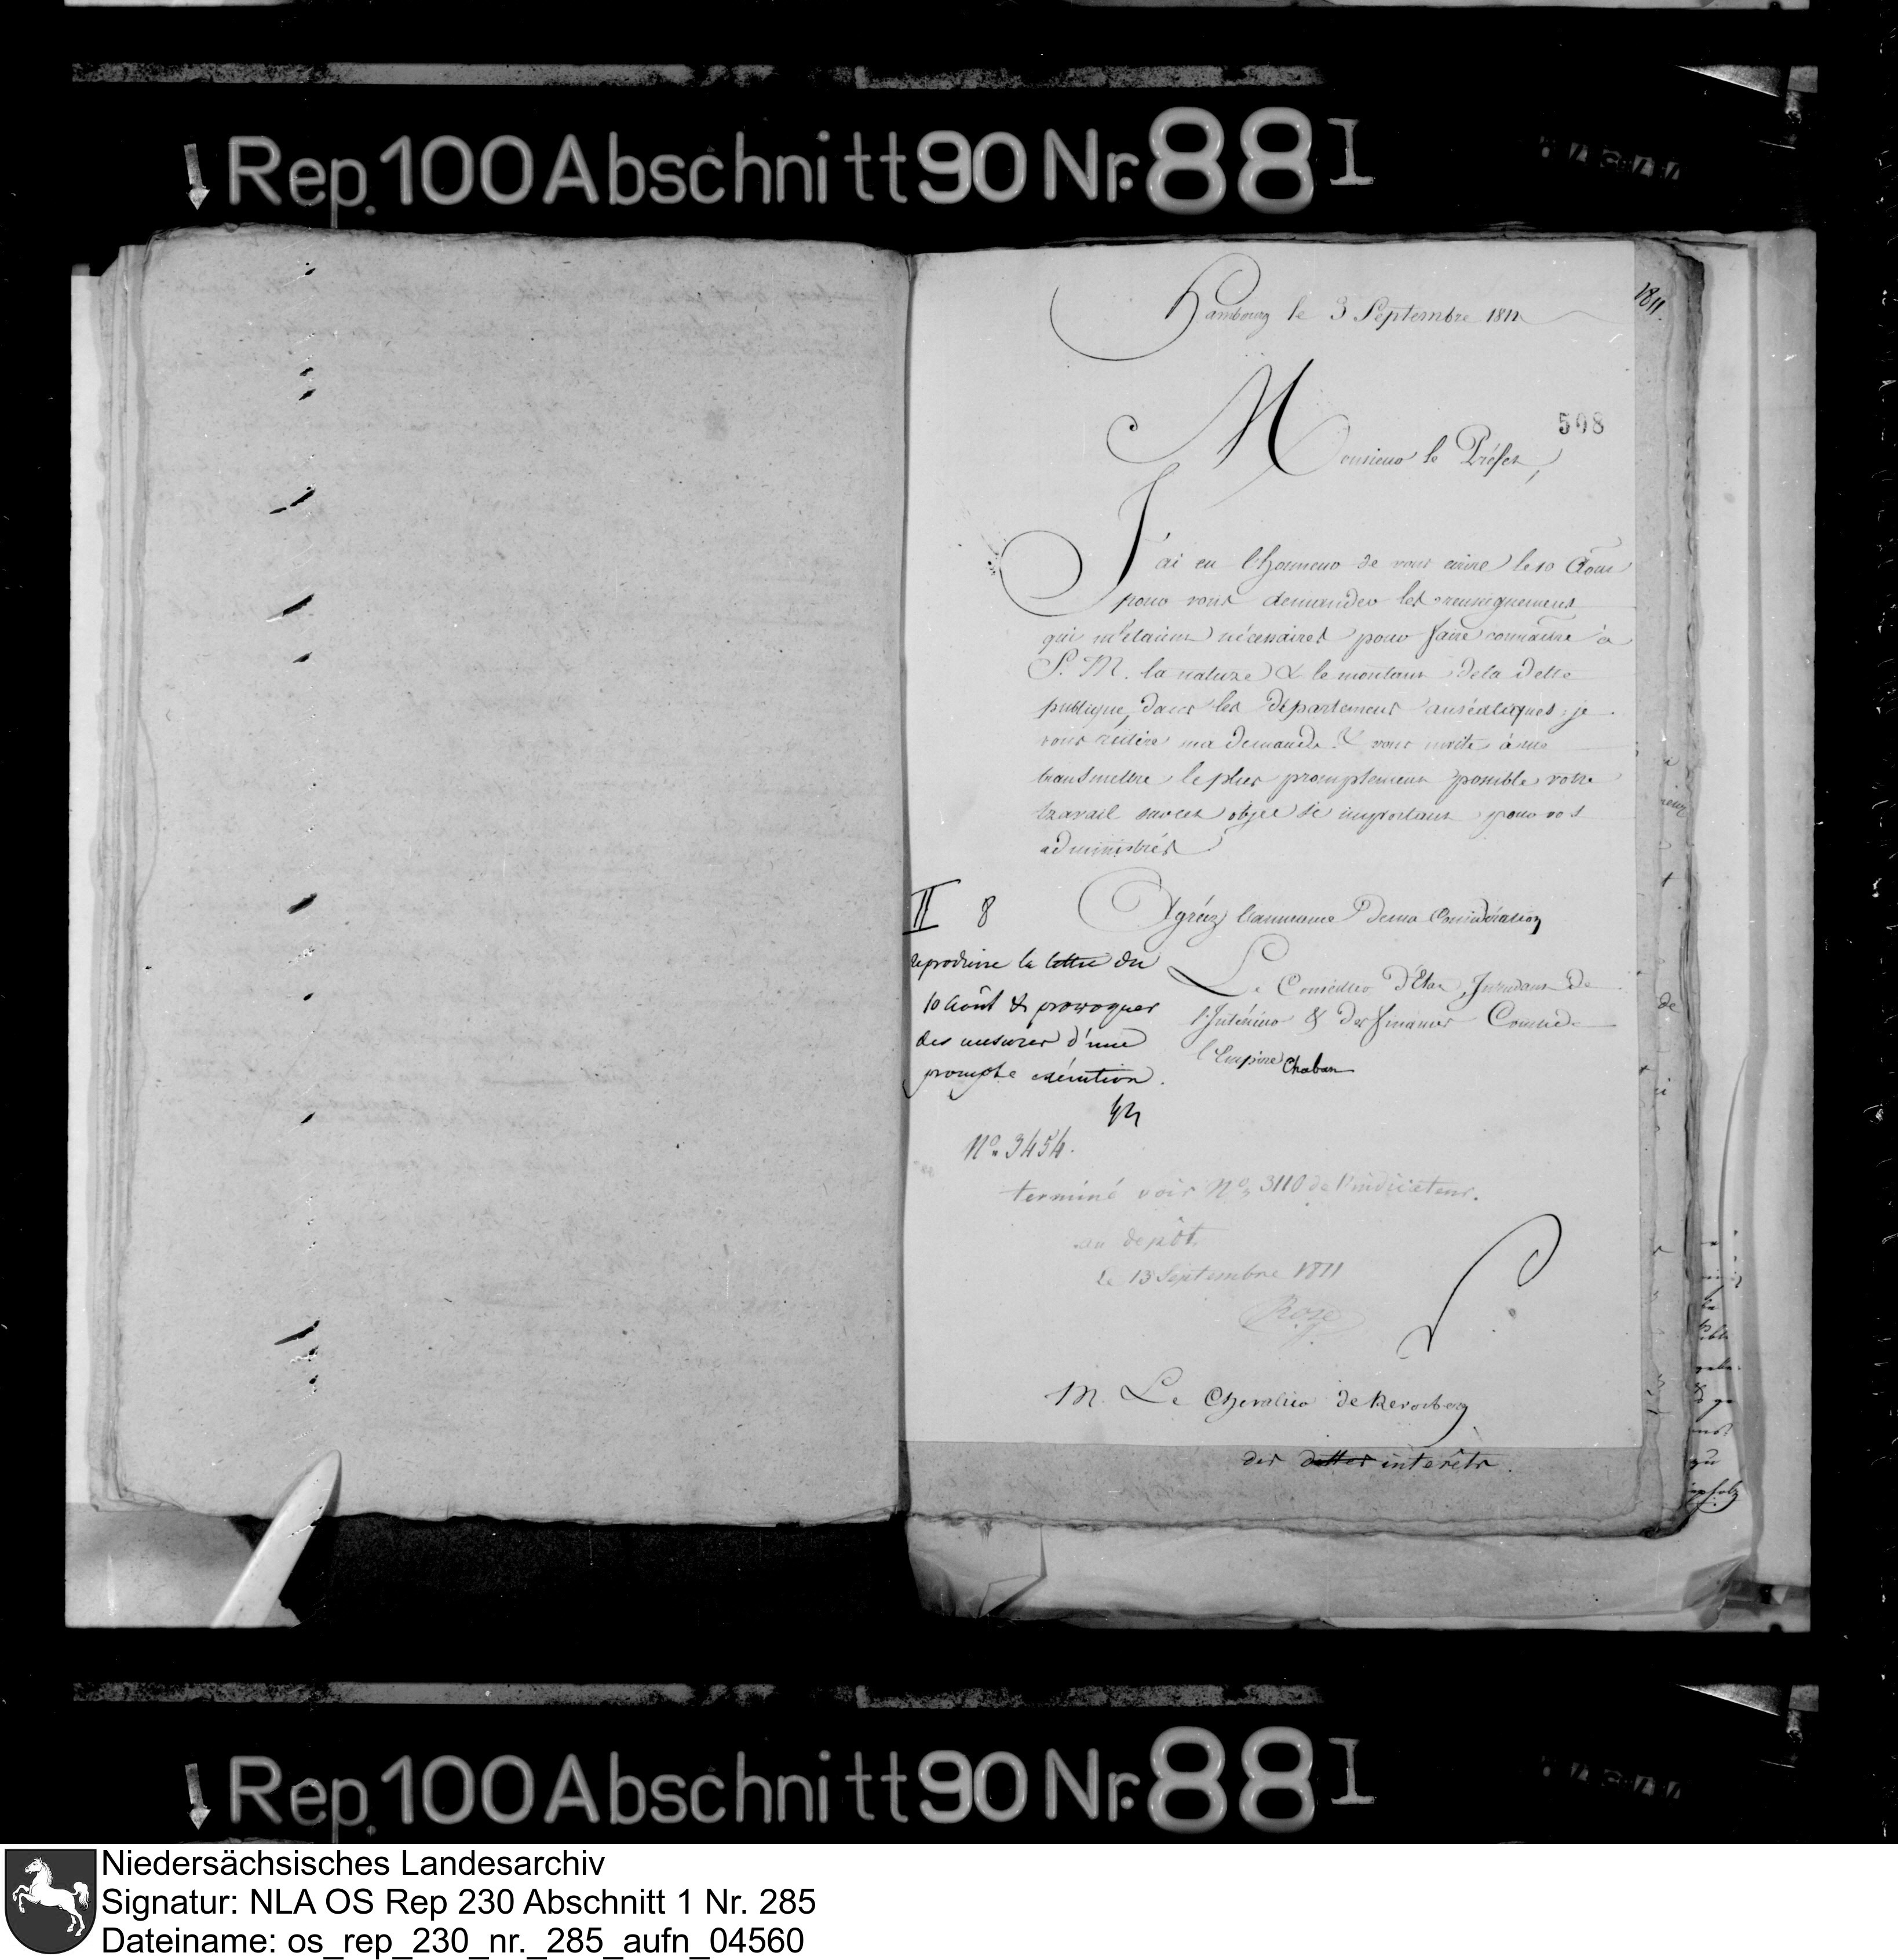 Rep. 100 Abschnitt 90 Nr. 88 I
1811.
Hambourg le 3 Septembre 1811
508
Monsieur le Préfet,
J'ai eu l'honneur de vous écrire le 10 Aout
pour vous demander les renseignemens
qui m'étaient nécessaires pour faire connaitre à
S. M. la nature & le montant de la dette
publique, dans les départemens anséatiques; je
vous réitère ma demande & vous invite à me
transmettre le plus promptement possible votre
travail sur cet objet si important pour vos
administrés
Agréez l'assurance de ma Considération
Le Conseiller d'Etat, Intendant de
l'Intérieur & des finances Comte de
l'Empire Chaban
II 8
reproduire la lettre du
10 août & provoquer
des mesures d'une
prompte exécution.
No. 3454.
terminé voir No. 3110 de l'indicateur.
au depôt
le 13 Septembre 1811
M. Le Chevalier de Keverberg
des dettes interêts.
Rep. 100 Abschnitt 90 Nr. 88 I
Niedersächsisches Landesarchiv
Signatur: NLA OS Rep 230 Abschnitt 1 Nr. 285
Dateiname: os_rep_230_nr._285_aufn_04560